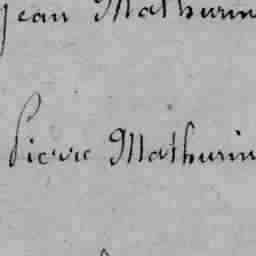 Jean Mathurin
Pierre Mathurin